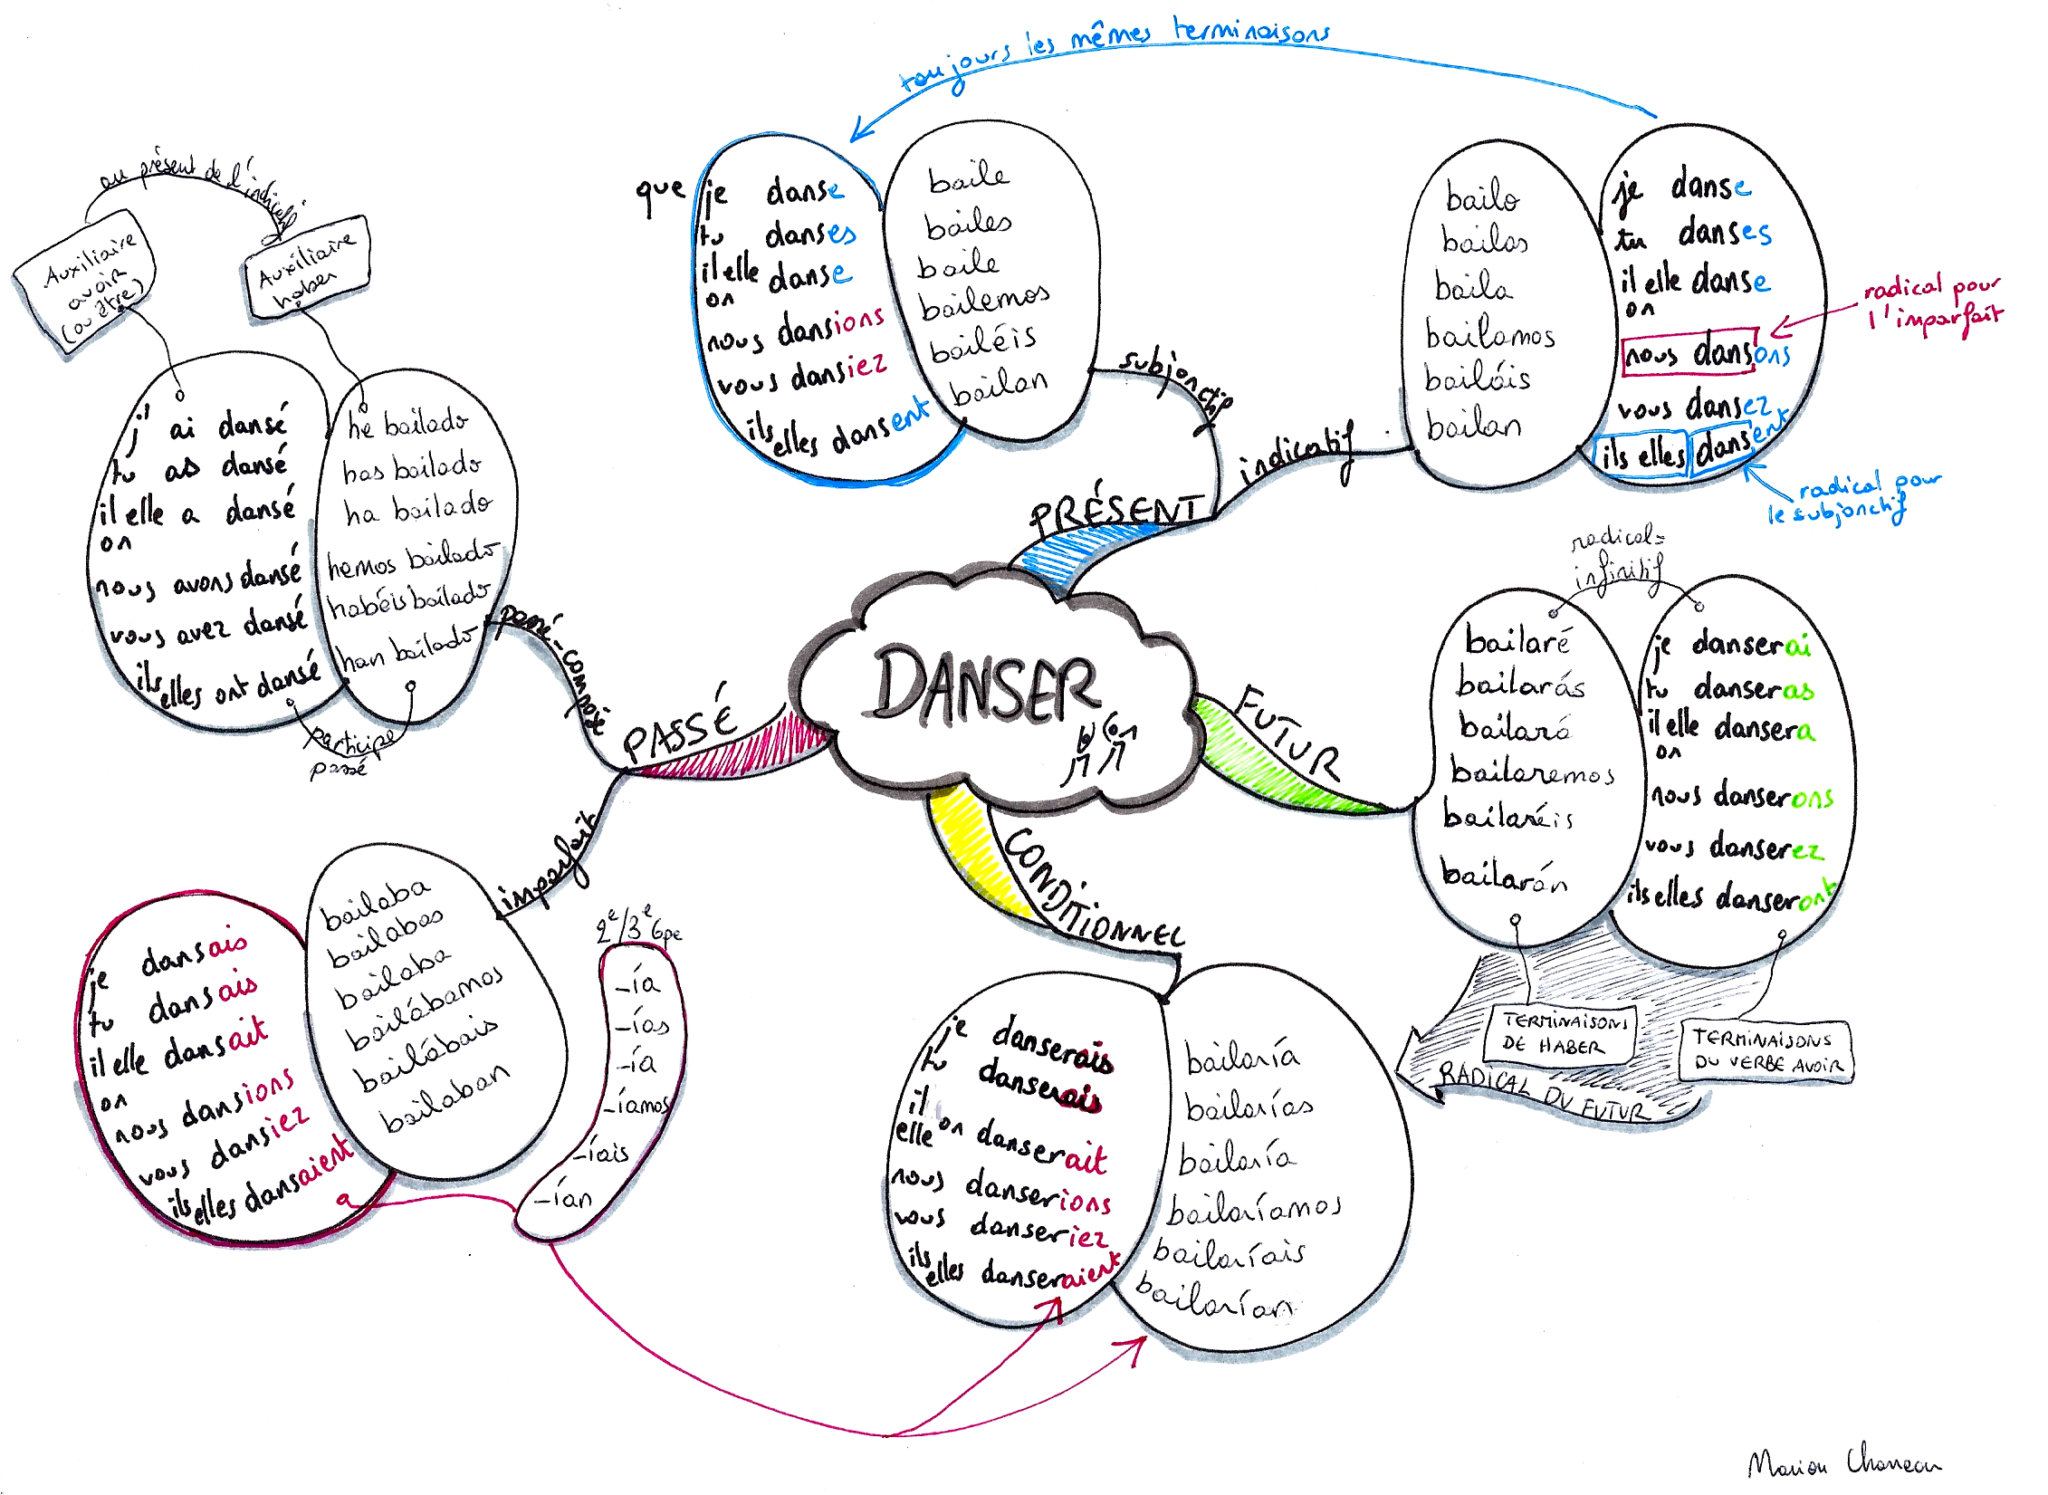 toujours les mêmes terminaisons
que je danse
tu danses
il elle danse
on
nous dansions
vous dansiez
ils elles dansent
baile
bailes
baile
bailemos
bailéis
bailan
subjonctif
bailo
bailas
baila
bailamos
bailáis
bailan
je danse
tu danses
il elle danse
on
nous dansons
vous dansez
ils elles dansent
radical pour
l'imparfait
radical pour
le subjonctif
indicatif
PRÉSENT
au présent de l'indicatif
Auxiliaire
avoir
(ou être)
Auxiliaire
haber
j'ai dansé
tu as dansé
il elle a dansé
on
nous avons dansé
vous avez dansé
ils elles ont dansé
he bailado
has bailado
ha bailado
hemos bailado
habéis bailado
han bailado
participe
passé
passé-composé
PASSÉ
DANSER
FUTUR
radical=
infinitif
bailaré
bailarás
bailará
bailaremos
bailaréis
bailarán
je danserai
tu danseras
il elle dansera
on
nous danserons
vous danserez
ils elles danseront
TERMINAISONS
DE HABER
TERMINAISONS
DU VERBE AVOIR
RADICAL DU FUTUR
imparfait
je dansais
tu dansais
il elle dansait
on
nous dansions
vous dansiez
ils elles dansaient
bailaba
bailabas
bailaba
bailábamos
bailábais
bailaban
2e/3e Gpe
-ía
-ías
-ía
-íamos
-íais
-ían
CONDITIONNEL
je danserais
tu danserais
il elle on danserait
nous danserions
vous danseriez
ils elles danseraient
bailaría
bailarías
bailaría
bailaríamos
bailaríais
bailarían
Marion